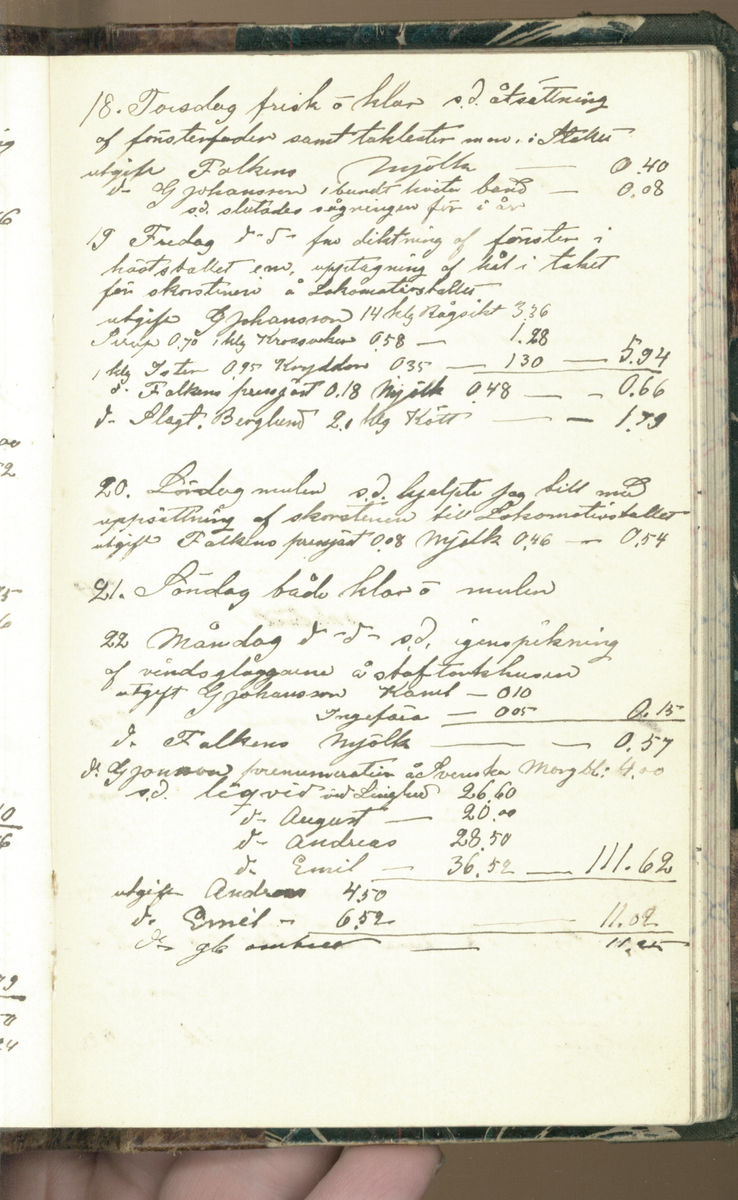 18. Torsdag frisk o klar s.d. åtsättning
af fönsterfoder samt taklester m.m. i Stallet
utgift Falkens Mjölk — 0.40
d- G Johansson 1 bundt hvita band — 0.08
s.d. slutades sågningen för i år
19 Fredag d- d- fm diktning af fönster i
häststallet em. upptagning af hål i taket
för skorstenen å Lokomotivstallet
utgift G Johansson 14 klg Rågsikt 3.36
Sirup 0.70 1 klg Krossocker 0.58 — 1.28
1 klg Ister 0.95 Kryddor 0.35 — 1.30 — 5.94
d- Falkens pressjäst 0.18 Mjölk 0.48 — 0.66
d- Slagt. Berglund 2.1 klg Kött — 1.79
20. Lördag mulen s.d. hjelpte jag till med
uppsättning af skorstenen till Lokomotivstallet
utgift Falkens pressjäst 0.08 Mjölk 0.46 — 0.54
21. Söndag både klar o mulen
22 Måndag d- d- s.d. igenspikning
af vindsgluggarne å
utgift G Johansson Kanel — 0.10
Ingefära — 0.05 0.15
d- Falkens Mjölk — 0.57
d- G Jonsson prenumeration å Svenska Morgbl: 4.00
s.d. liqvid vid Linghed 26.60
d- August — 20.00
d- Andreas 28.50
d- Emil — 36.52 — 111.62
utgift Andreas 4.50
d- Emil — 6.52 — 11.02
d- gb —